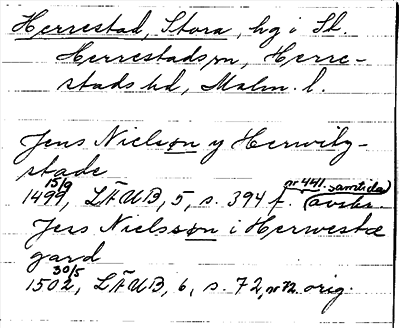 Herrestad, Stora, hg i St.
Herrestads sn, Herre-
stads hd, Malm. l.
Jens Nielsøn y Herwitz-
stade
15/9 1499, LÄUB, 5, s. 394 f. nr 441. (samtida avskr.)
Jess Nielsson i Herwestæ
gard
30/5 1502, LÄUB, 6, s. 72, nr 72. orig.